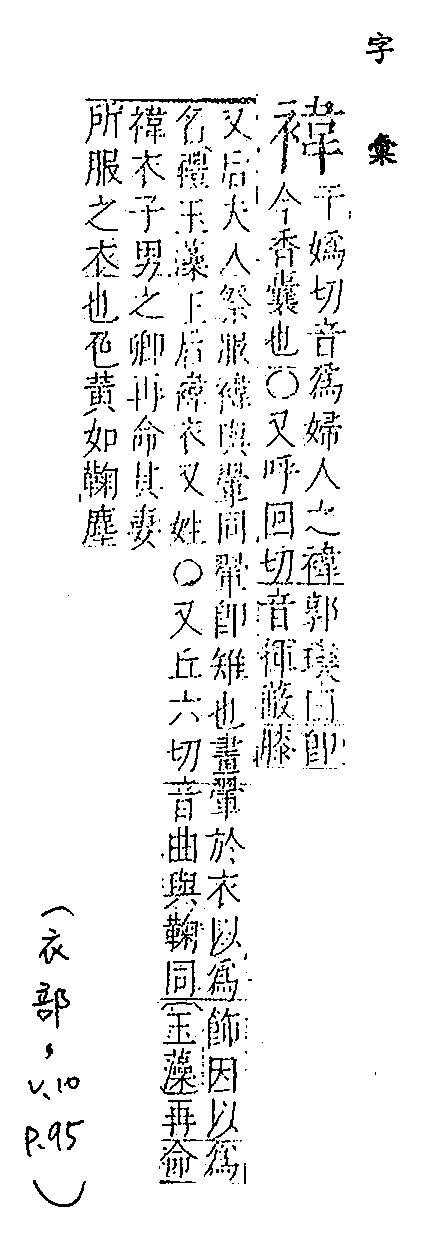 字彙
褘
于嬀切音爲婦人之褘郭璞曰卽
今香囊也○又呼回切音揮蔽膝
又后夫人祭服褘與翬同翬卽雉也畫翬於衣以爲飾因以爲
名禮玉藻王后褘衣又姓○又丘六切音曲與鞠同玉藻再命
褘衣子男之卿再命其妻
所服之衣也色黃如鞠塵
(衣部, v.10 p.95)